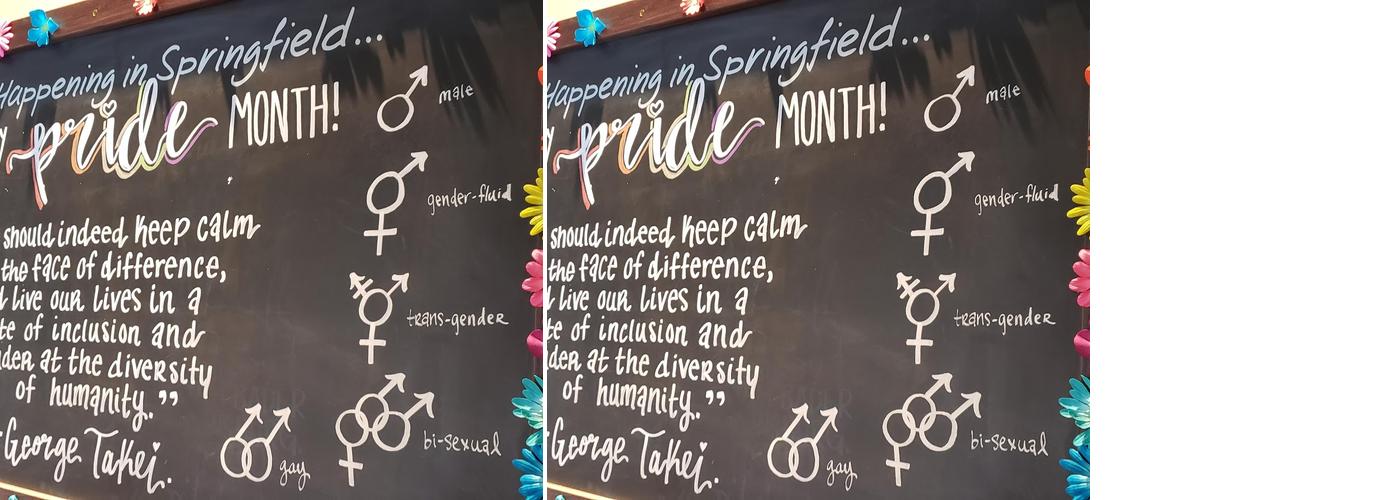 Happening in Springfield...
pride MONTH!
male
gender-fluid
should indeed keep calm
the face of difference,
live our lives in a
trans-gender
of inclusion and
at the diversity
of humanity.”
bi-sexual
George Takei.
gay
Happening in Springfield...
pride MONTH!
male
gender-fluid
should indeed keep calm
the face of difference,
live our lives in a
trans-gender
of inclusion and
at the diversity
of humanity.”
bi-sexual
George Takei.
gay